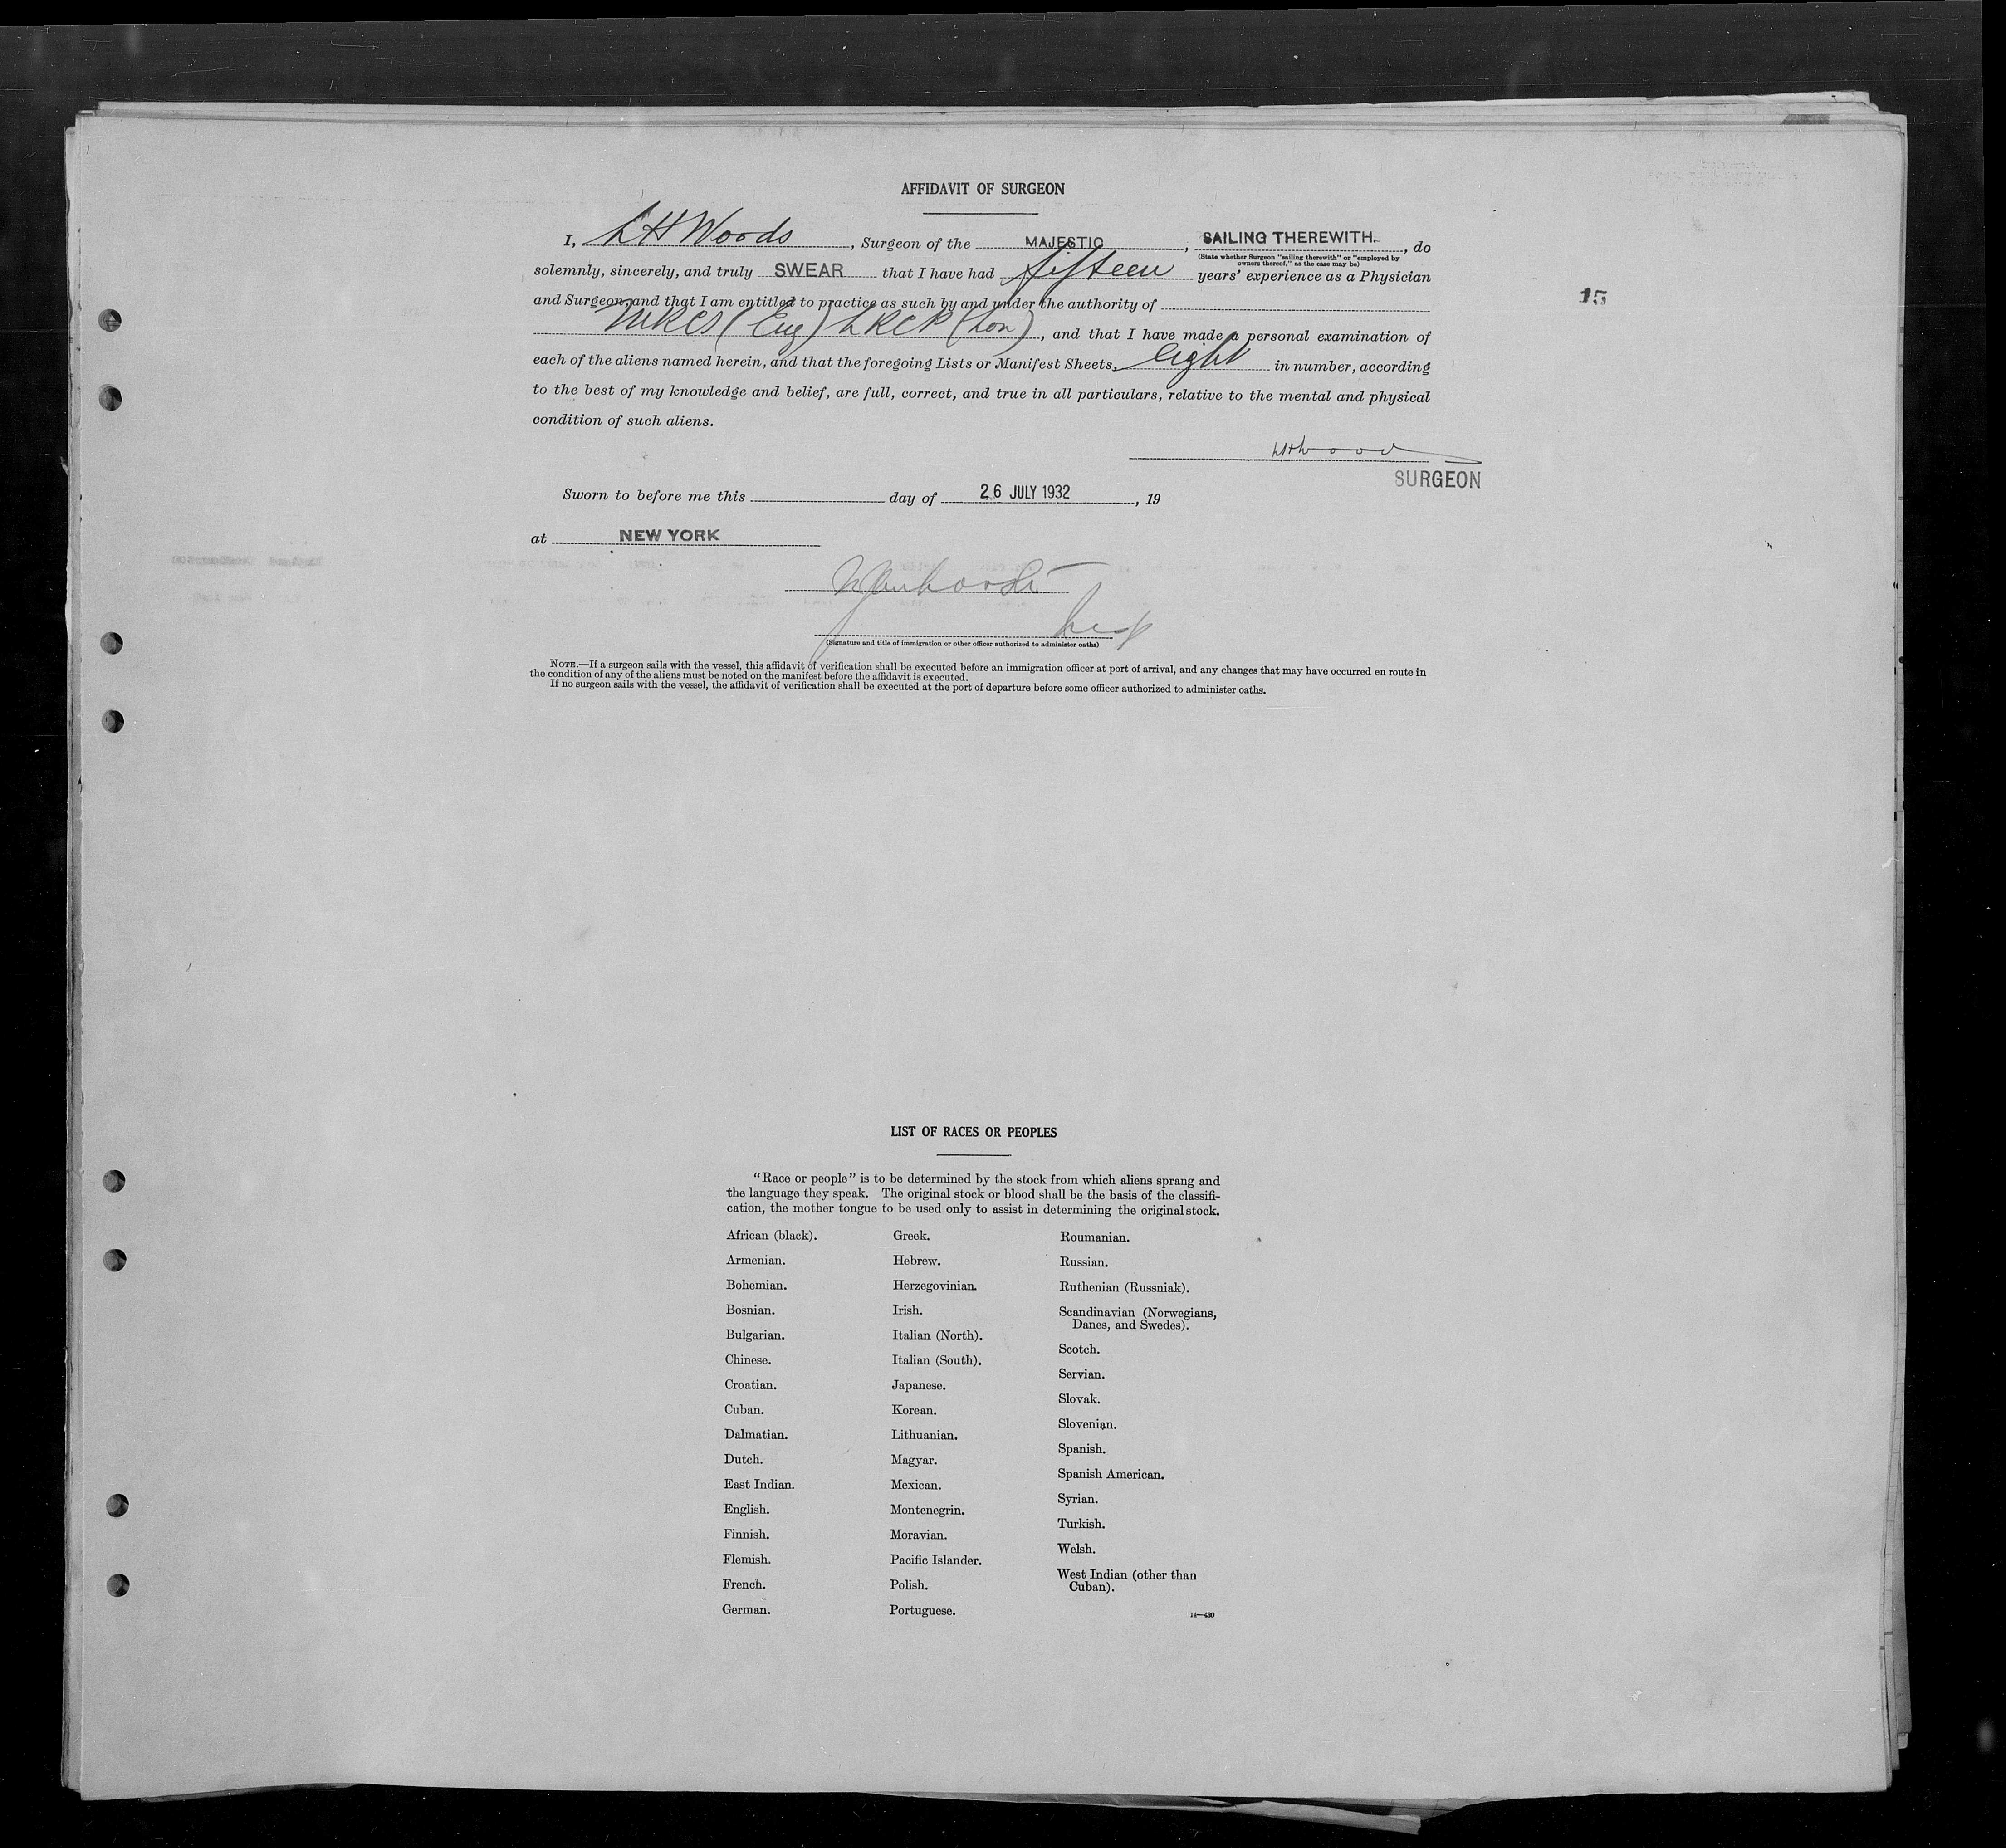 AFFIDAVIT OF SURGEON
I, LH Woods, Surgeon of the MAJESTIC, SAILING THEREWITH., do
(State whether Surgeon "sailing therewith" or "employed by
owners thereof," as the case may be)
solemnly, sincerely, and truly SWEAR that I have had fifteen years' experience as a Physician
15
and Surgeon, and that I am entitled to practice as such by and under the authority of
MRCS (Eng) LRCP (Lon), and that I have made a personal examination of
each of the aliens named herein, and that the foregoing Lists or Manifest Sheets, eight in number, according
to the best of my knowledge and belief, are full, correct, and true in all particulars, relative to the mental and physical
condition of such aliens.
SURGEON
Sworn to before me this day of 26 JULY 1932, 19
at NEW YORK
(Signature and title of immigration or other officer authorized to administer oaths)
NOTE.—If a surgeon sails with the vessel, this affidavit of verification shall be executed before an immigration officer at port of arrival, and any changes that may have occurred en route in
the condition of any of the aliens must be noted on the manifest before the affidavit is executed.
If no surgeon sails with the vessel, the affidavit of verification shall be executed at the port of departure before some officer authorized to administer oaths.
LIST OF RACES OR PEOPLES
"Race or people" is to be determined by the stock from which aliens sprang and
the language they speak. The original stock or blood shall be the basis of the classifi-
cation, the mother tongue to be used only to assist in determining the original stock.
African (black).
Armenian.
Bohemian.
Bosnian.
Bulgarian.
Chinese.
Croatian.
Cuban.
Dalmatian.
Dutch.
East Indian.
English.
Finnish.
Flemish.
French.
German.
Greek.
Hebrew.
Herzegovinian.
Irish.
Italian (North).
Italian (South).
Japanese.
Korean.
Lithuanian.
Magyar.
Mexican.
Montenegrin.
Moravian.
Pacific Islander.
Polish.
Portuguese.
Roumanian.
Russian.
Ruthenian (Russniak).
Scandinavian (Norwegians,
Danes, and Swedes).
Scotch.
Servian.
Slovak.
Slovenian.
Spanish.
Spanish American.
Syrian.
Turkish.
Welsh.
West Indian (other than
Cuban).
14—430